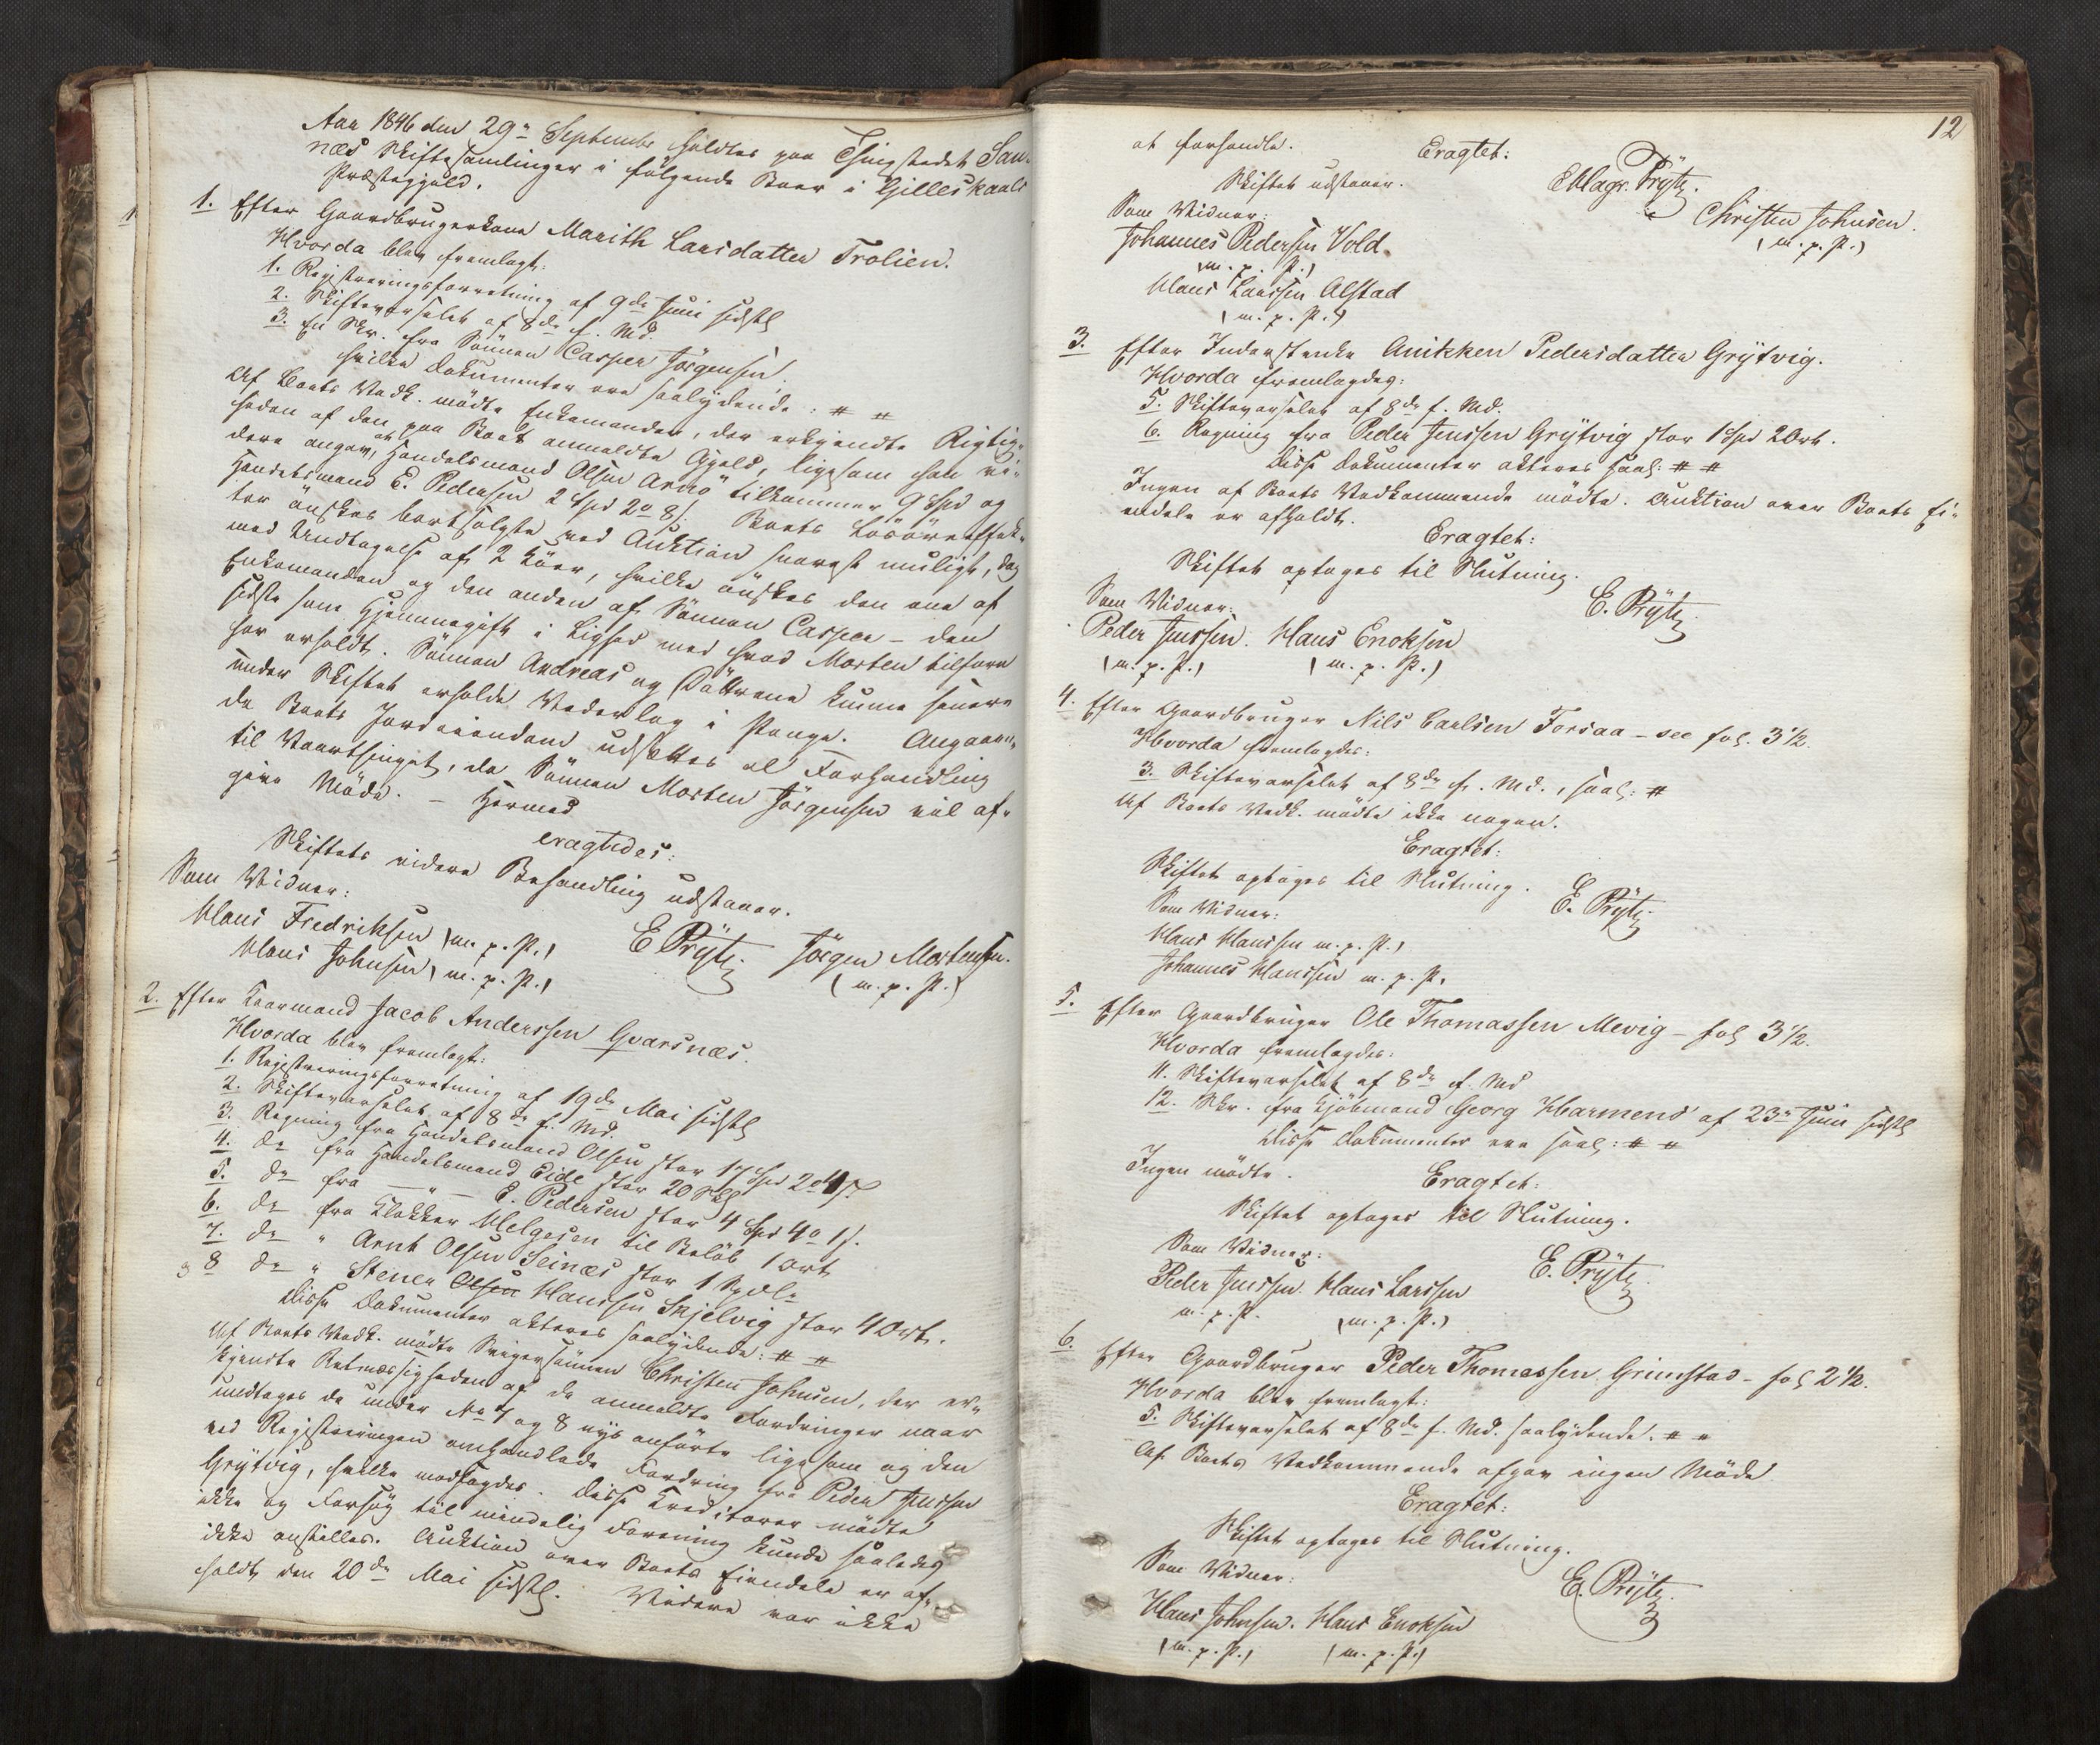 Aar 1846 den 29de September holdtes paa Thingstedet San-
næs Skiftesamlinger i følgende Boer i Gilleskaals
Præstegjeld.
1. Efter Gaardbrugerkone Marith Larsdatter Trolien.
Hvorda blev fremlagt:
1. Registreringsforretning af 9de Juni sidstl
2. Skiftevarselet af 8de f. Md.
3. En Skr. fra Sønnen Casper Jörgensen.
hvilke Dokumenter ere saalydende: # #
Af Boets Vedk. mødte Enkemanden, der erkjendte Rigtig-
heden af den paa Boet anmeldte Gjeld, ligesom han vi-
dere angav, at Handelsmand Olsen Arnö tilkommer 9 Spd og
Handelsmand E. Pedersen 2 Spd 2o 8 s. Boets Løsøreeffek-
ter ønskes bortsolgte ved Auktion snarest muligt, dog
med Undtagelse af 2 Köer, hvilke ønskes den ene af
Enkemanden og den anden af Sønnen Casper – den
sidste som Hjemmegift i Lighed med hvad Morten tilforn
har erholdt. Sønnen Andreas og Døttrene kunne senere
under Skiftet erholde Vederlag i Penge. Angaaen-
de Boets Jordeiendom udsættes al Forhandling
til Vaarthinget, da Sønnen Morten Jörgensen vil af-
give Møde. – Hermed
eragtedes:
Skiftets videre Behandling udstaaer.
Som Vidner:
Hans Fredriksen (m. p. P.)
E Prÿtz. Jörgen Mortensen.
Hans Johnsen (m. p. P.)
(m. p. P.)
2. Efter Kaarmand Jacob Anderssen Qvarsnæs.
Hvorda blev fremlagt:
1. Registreringsforretning af 19de Mai sidstl
2. Skiftevarselet af 8de f. Md.
3. Regning fra Handelsmand Olsen stor 17 Spd 2o 4 s.
4. do fra Handelsmand Eide stor 20 Skl
5. do fra — " — E. Pedersen stor 4 Spd 4o 1 s.
6. do fra Klokker Helgesen til Beløb 1 Ort
7. do " Arnt Olsen Seines stor 1 Spdlr
8 do " Stener Olsen Hanssen Skjelvig stor 4 Ort.
Disse Dokumenter akteres saalydende: # #
Af Boets Vedk. mødte Svigersønnen Christen Johnsen, der er-
kjendte Retmæssigheden af de anmeldte Fordringer naar
undtages de under No 7 og 8 nys anførte ligesom og den
ved Registreringen omhandlede Fordring fra Peder Jenssen
Grÿtvig, hvilke modsagdes. Disse Kreditorer mødte
ikke og Forsøg til mindelig Forening kunde saaledes
ikke anstilles. Auktion over Boets Eiendele er af-
holdt den 20de Mai sidstl. Videre var ikke
12
at forhandle.
Eragtet:
Skiftet udstaaer.
E Hagr. Prÿtz.
Som Vidner:
Christen Johnsen.
Johannes Pedersen Vold.
(m. p. P.)
(m. p. P.)
Hans Larssen Alstad
(m. p. P.)
3. Efter Inderstenke Anikken Pedersdatter Grÿtvig.
Hvorda fremlagdes:
5. Skiftevarselet af 8de f. Md.
6. Regning fra Peder Jenssen Grÿtvig stor 1 Spd 2 Ort.
Disse Dokumenter akteres saal: # #
Ingen af Boets Vedkommende mødte. Auktion over Boets Ei-
endele er afholdt.
Eragtet:
Skiftet optages til Slutning.
Som Vidner:
E. Prÿtz
Peder Jenssen. Hans Enoksen
(m. p. P.) (m. p. P.)
4. Efter Gaardbruger Nils Carlsen Forsaa – see fol. 3 1/2.
Hvorda fremlagdes:
3. Skiftevarselet af 8de f. Md., saal: #
Af Boets Vedk. mødte ikke nogen.
Eragtet:
Skiftet optages til Slutning.
Som Vidner:
E. Prÿtz
Hans Hanssen m. p. P.
Johannes Hanssen m. p. P.
5. Efter Gaardbruger Ole Thomassen Mevig – fol 3 1/2.
Hvorda fremlagdes:
11. Skiftevarselet af 8de f. Md
12. Skr. fra Kjöbmand Georg Harmens' af 23de Juni sidstl
Disse Dokumenter ere saal: # #
Ingen mødte.
Eragtet:
Skiftet optages til Slutning.
Som Vidner:
E. Prÿtz
Peder Jenssen. Hans Larssen
m. p. P. (m. p. P.)
6. Efter Gaardbruger Peder Thomassen Grimstad – fol 2 1/2.
Hvorda blev fremlagt:
5. Skiftevarselet af 8de f. Md. saalydende. # #
Af Boets Vedkommende afgav ingen Møde.
Eragtet:
Skiftet optages til Slutning.
Som Vidner:
E. Prÿtz
Hans Johnsen. Hans Enoksen
(m. p. P.) (m. p. P.)